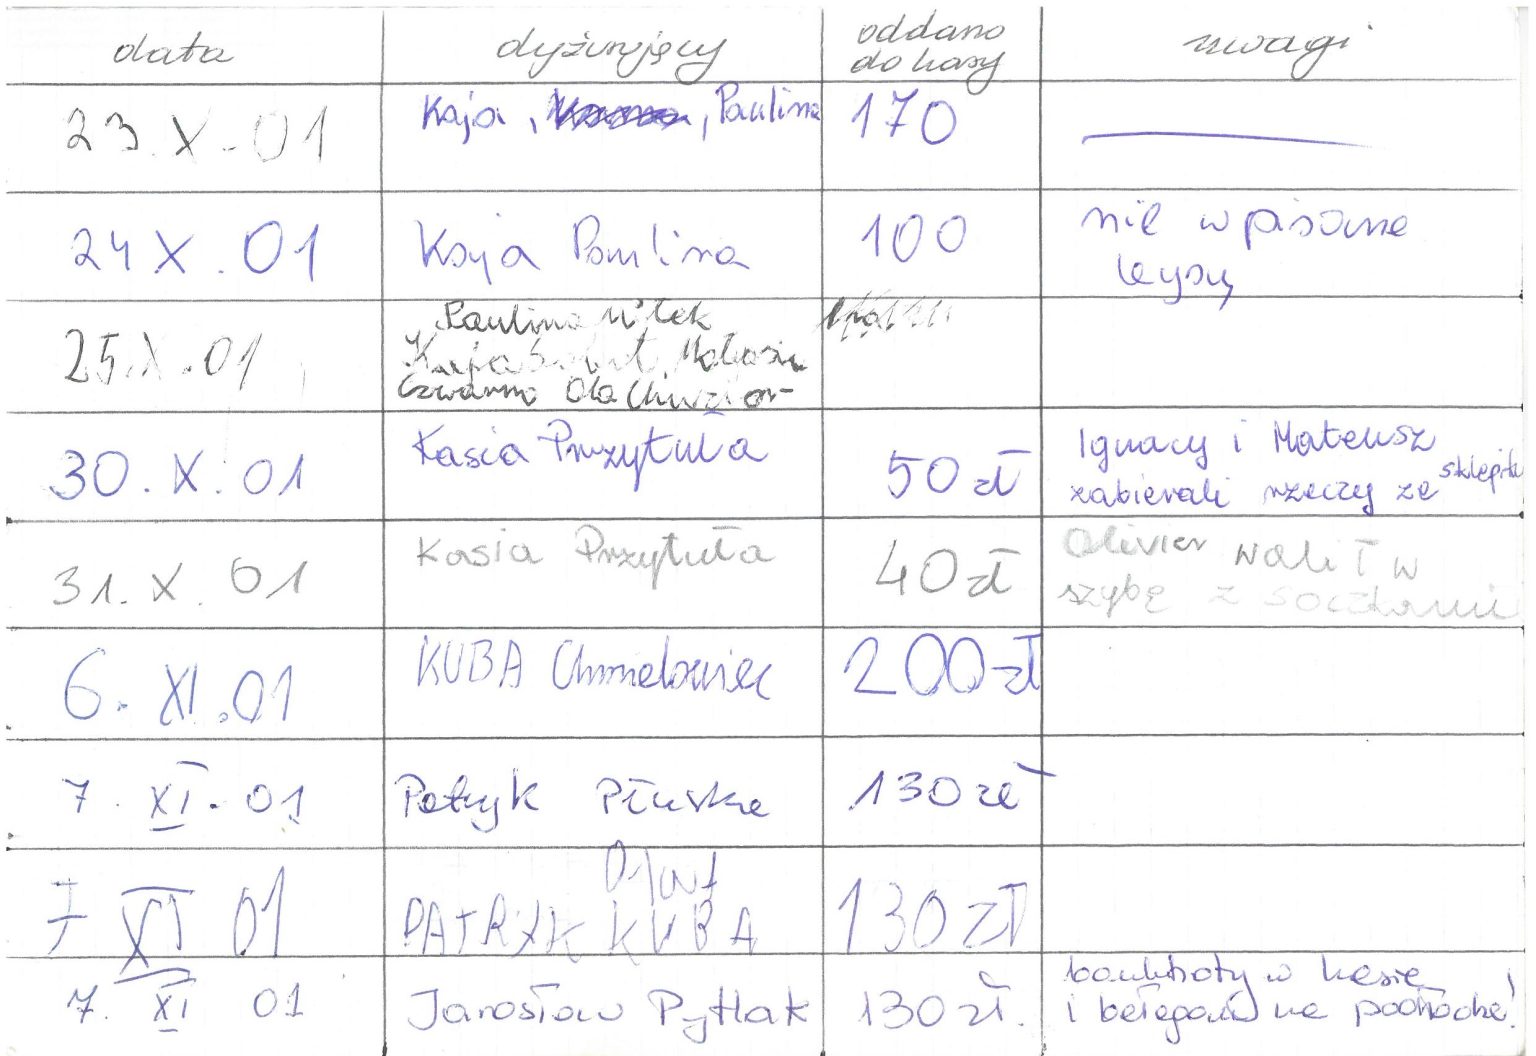 data dyżurujący oddano do kasy uwagi
23.X.01 Kaja, , Paulina 170
24 X.01 Kaja Paulina 100 nie wpisane
leysy
25.X.01 Paulina Małgosia
Czwarno Ola
30.X.01 Kasia Przytuła 50 zł Ignacy i Mateusz
zabierali rzeczy ze sklepiku
31.X.01 Kasia Przytuła 40 zł Olivier walił w
szybę z soczkami
6.XI.01 KUBA Chmielowiec 200 zł
7.XI.01 Patryk Płuska 130 zł
7 XI 01 PATRYK KUBA 130 zł
7. XI 01 Jarosław Pytlak 130 zł. banknoty w kasie
i bałagan na podłodze!